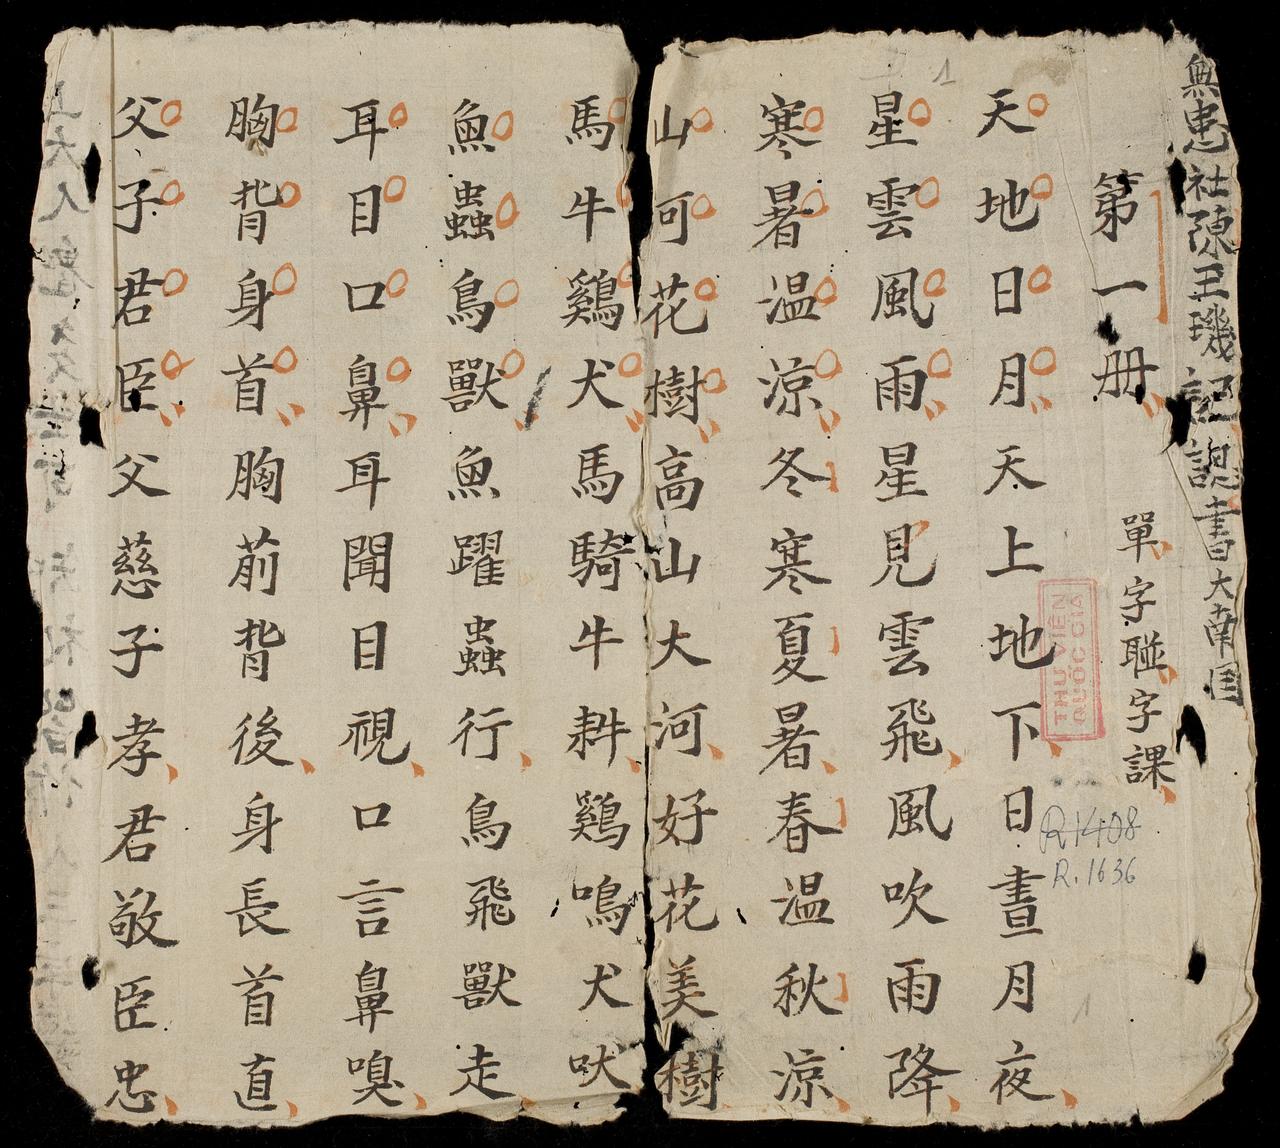 無患社陳王璣記認書大南国
第一册
單字聯字課
天地日月天上地下日晝月夜
星雲風雨星見雲飛風吹雨降
寒暑温凉冬寒夏暑春温秋凉
山河花樹高山大河好花美樹
馬牛鷄犬馬騎牛耕鷄鳴犬吠
魚蟲鳥獸魚躍蟲行鳥飛獸走
耳目口鼻耳聞目視口言鼻嗅
胸背身首胸前背後身長首直
父子君臣父慈子孝君敬臣忠
THƯ VIỆN
QUỐC GIA
R1408
R.1636
1
1